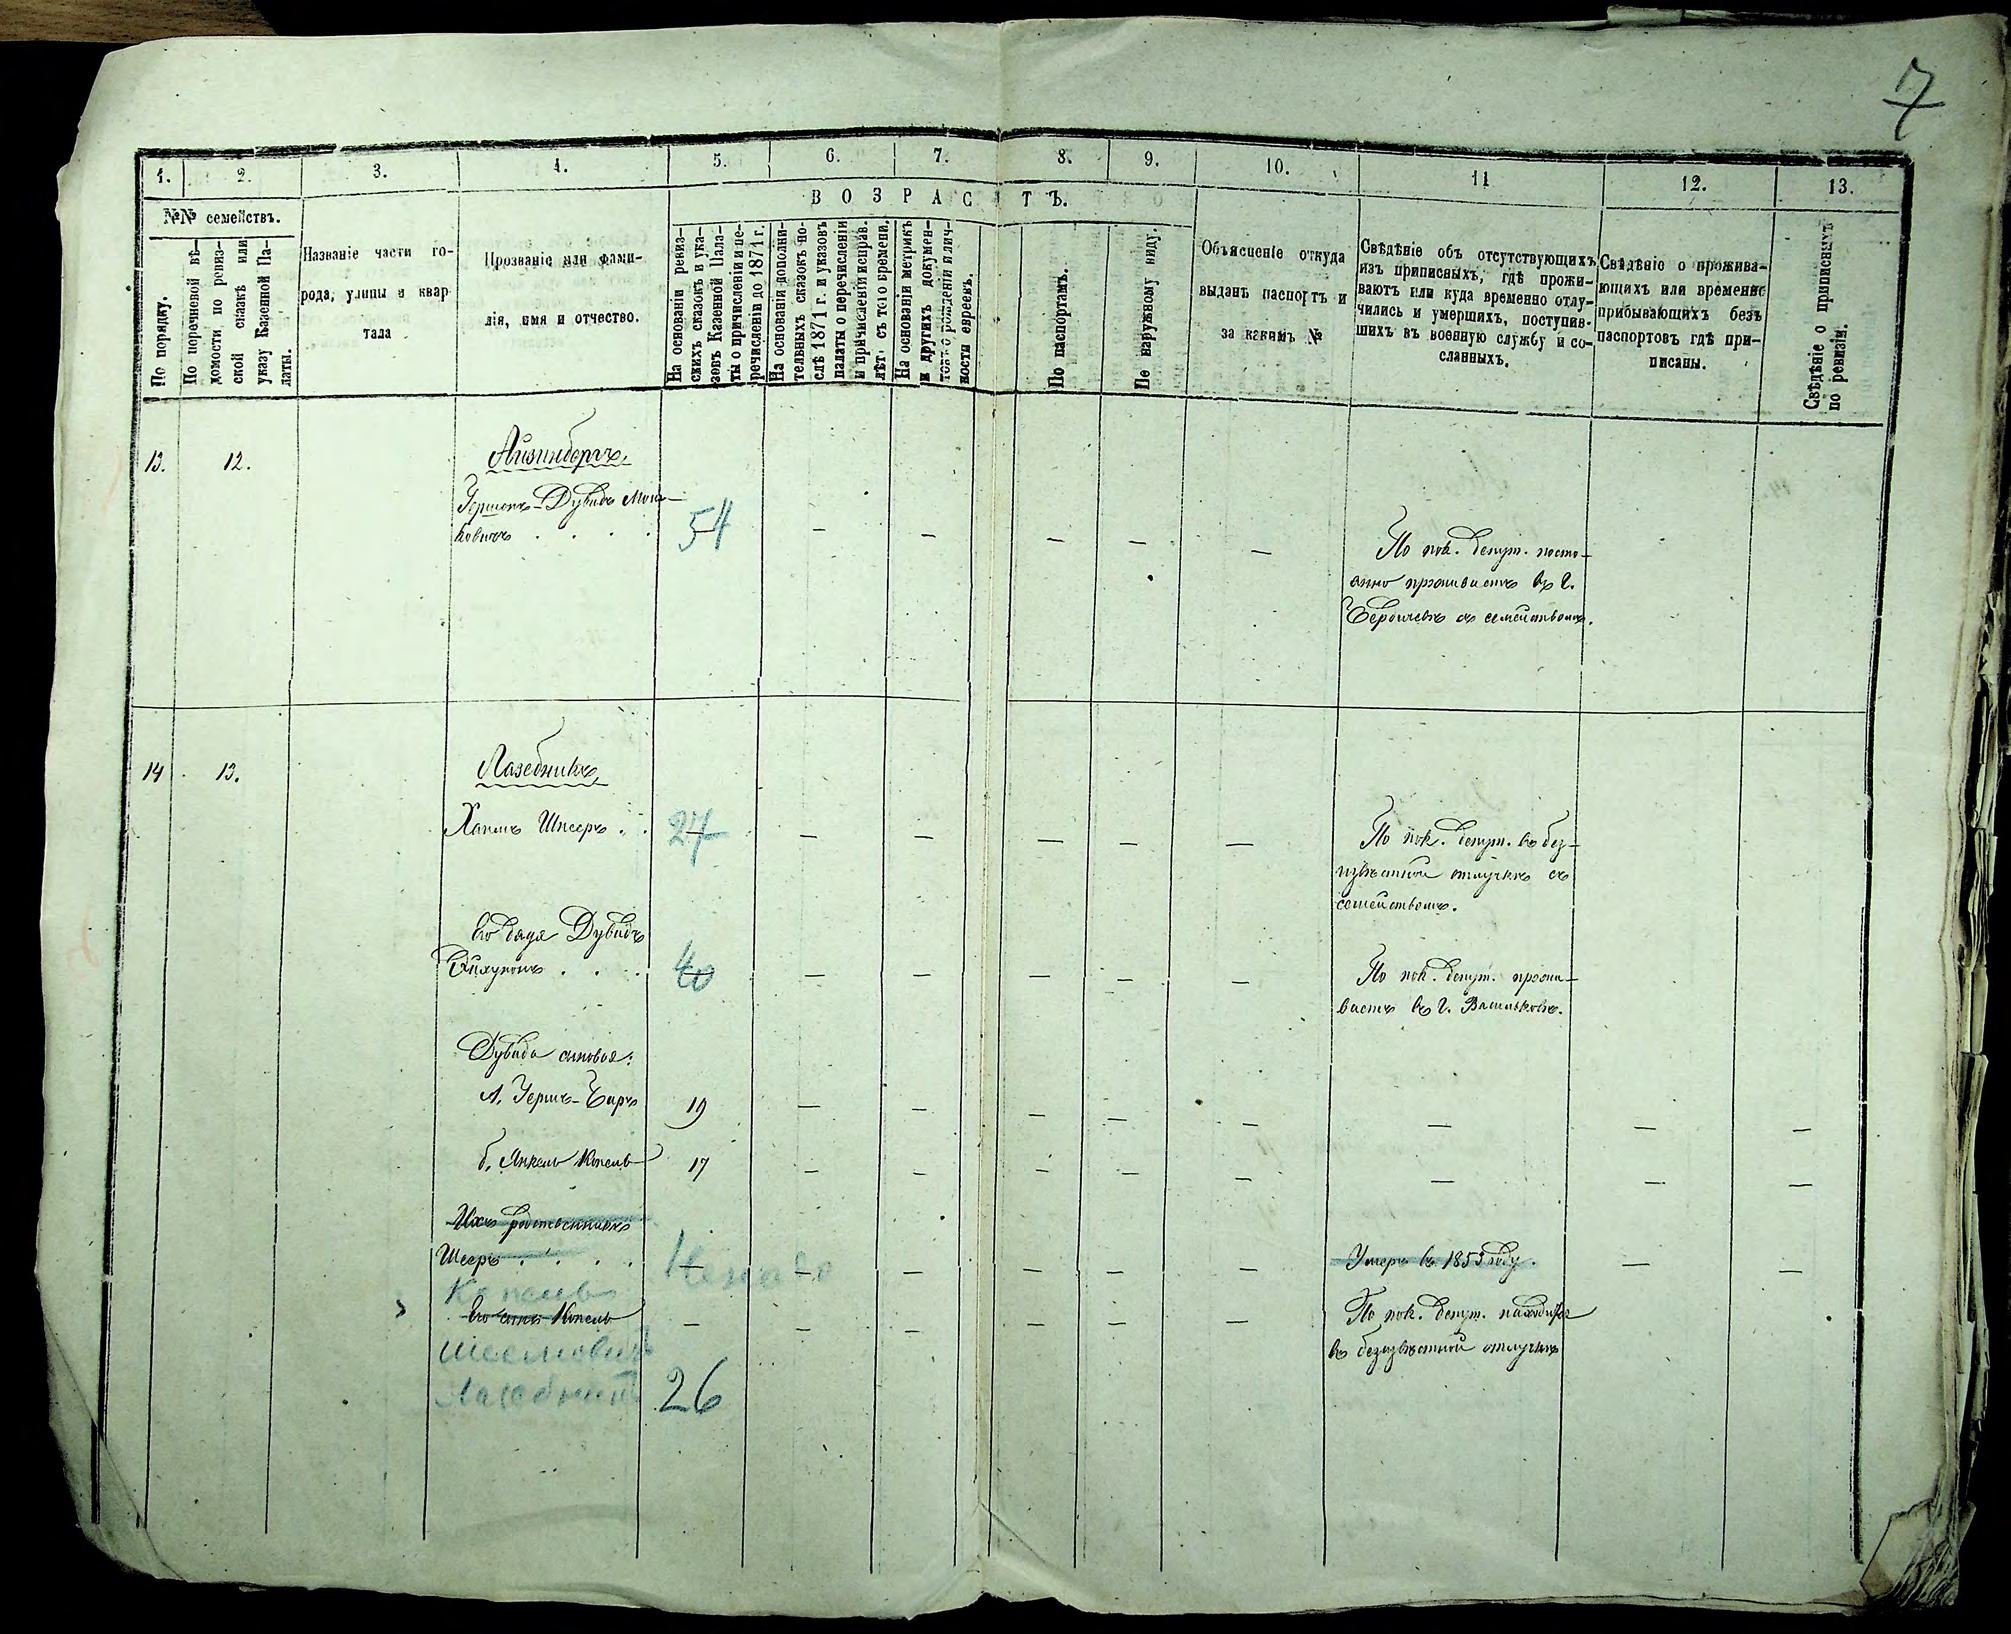 7
1. 2. 3. 4. 5. 6. 7. 8. 9. 10. 11 12. 13.
№№ семействъ.
ВОЗРАСТЪ.
По порядку.
По перечневой вѣ-
домости по ревиз-
ской сказкѣ или
указу Казенной Па-
латы.
Названіе части го-
рода, улицы и квар
тала
Прозваніе или фами-
лія, имя и отчество.
На основаніи ревиз-
скихъ сказокъ и ука-
зовъ Казенной Пала-
ты о причисленіи и пе-
речисленіи до 1871 г.
На основаніи дополни-
тельныхъ сказокъ по-
слѣ 1871 г. и указовъ
палаты о перечисленіи
и причисленіи исправ.
лѣт. съ того времени.
На основаніи метрикъ
и другихъ докумен-
товъ о рожденіи и лич-
ности евреевъ.
По паспортамъ.
По наружному виду.
Объясненіе откуда
выданъ паспортъ и
за какимъ №
Свѣдѣніе объ отсутствующихъ
изъ приписныхъ, гдѣ прожи-
ваютъ или куда временно отлу-
чились и умершихъ, поступив-
шихъ въ военную службу и со-
сланныхъ.
Свѣдѣніе о прожива-
ющихъ или временно
прибывающихъ безъ
паспортовъ гдѣ при-
писаны.
Свѣдѣніе о приписныхъ
по ревизіи.
13. 12. Айзинбергъ
Гершонъ-Дувидъ Мош-
ковичъ . . . . 54 — — — — —
По пок. депут. посто-
янно проживаетъ въ г.
Бердичевѣ съ семействомъ.
14 13. Лазебникъ
Хаимъ Шнееръ . . 27 — — — — —
По пок. депут. въ без-
извѣстной отлучкѣ съ
семействомъ.
Его дядя Дувидъ
. . . 40 — — — — —
По пок. депут. прожи-
ваетъ въ г. Васильковѣ.
Дувида сыновья:
А. Гершъ-Беръ 19 — — — — — — — —
б. Янкель Копель 17 — — — — — — — —
Ихъ родственникъ
. . . . — — — — — — Умеръ въ 1853 году. — —
Копель
Его сынъ Копель — — — — — — По пок. депут. находится
въ безизвѣстной отлучкѣ
Лазебникъ 26